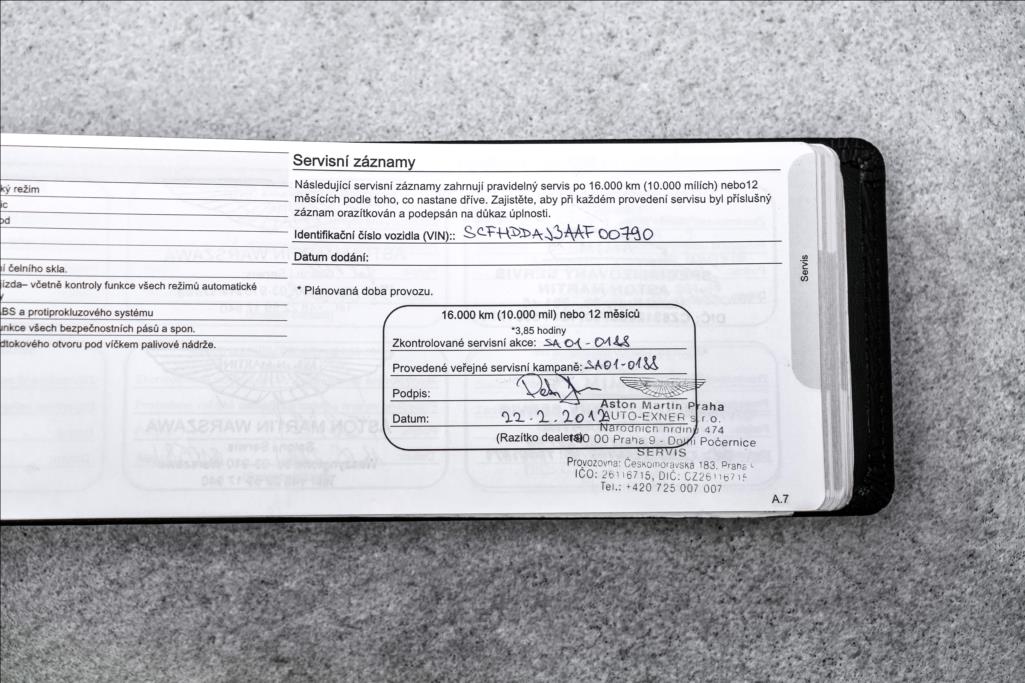 ký režim
ic
od
í čelního skla.
jízda– včetně kontroly funkce všech režimů automatické
y
ABS a protiprokluzového systému
unkce všech bezpečnostních pásů a spon.
dtokového otvoru pod víčkem palivové nádrže.
Servisní záznamy
Následující servisní záznamy zahrnují pravidelný servis po 16.000 km (10.000 mílích) nebo12
měsících podle toho, co nastane dříve. Zajistěte, aby při každém provedení servisu byl příslušný
záznam orazítkován a podepsán na důkaz úplnosti.
Identifikační číslo vozidla (VIN):: SCFHDDAJ3AAF00790
Datum dodání:
* Plánovaná doba provozu.
16.000 km (10.000 mil) nebo 12 měsíců
*3,85 hodiny
Zkontrolované servisní akce: SA01-0188
Provedené veřejné servisní kampaně: SA01-0188
Podpis:
Datum: 22.2.2012
(Razítko dealera)
Aston Martin Praha
AUTO-EXNER s.r.o.
Národních hrdinů 474
190 00 Praha 9 - Dolní Počernice
SERVIS
Provozovna: Českomoravská 183, Praha
IČO: 26116715, DIČ: CZ26116715
Tel.: +420 725 007 007
Servis
A.7